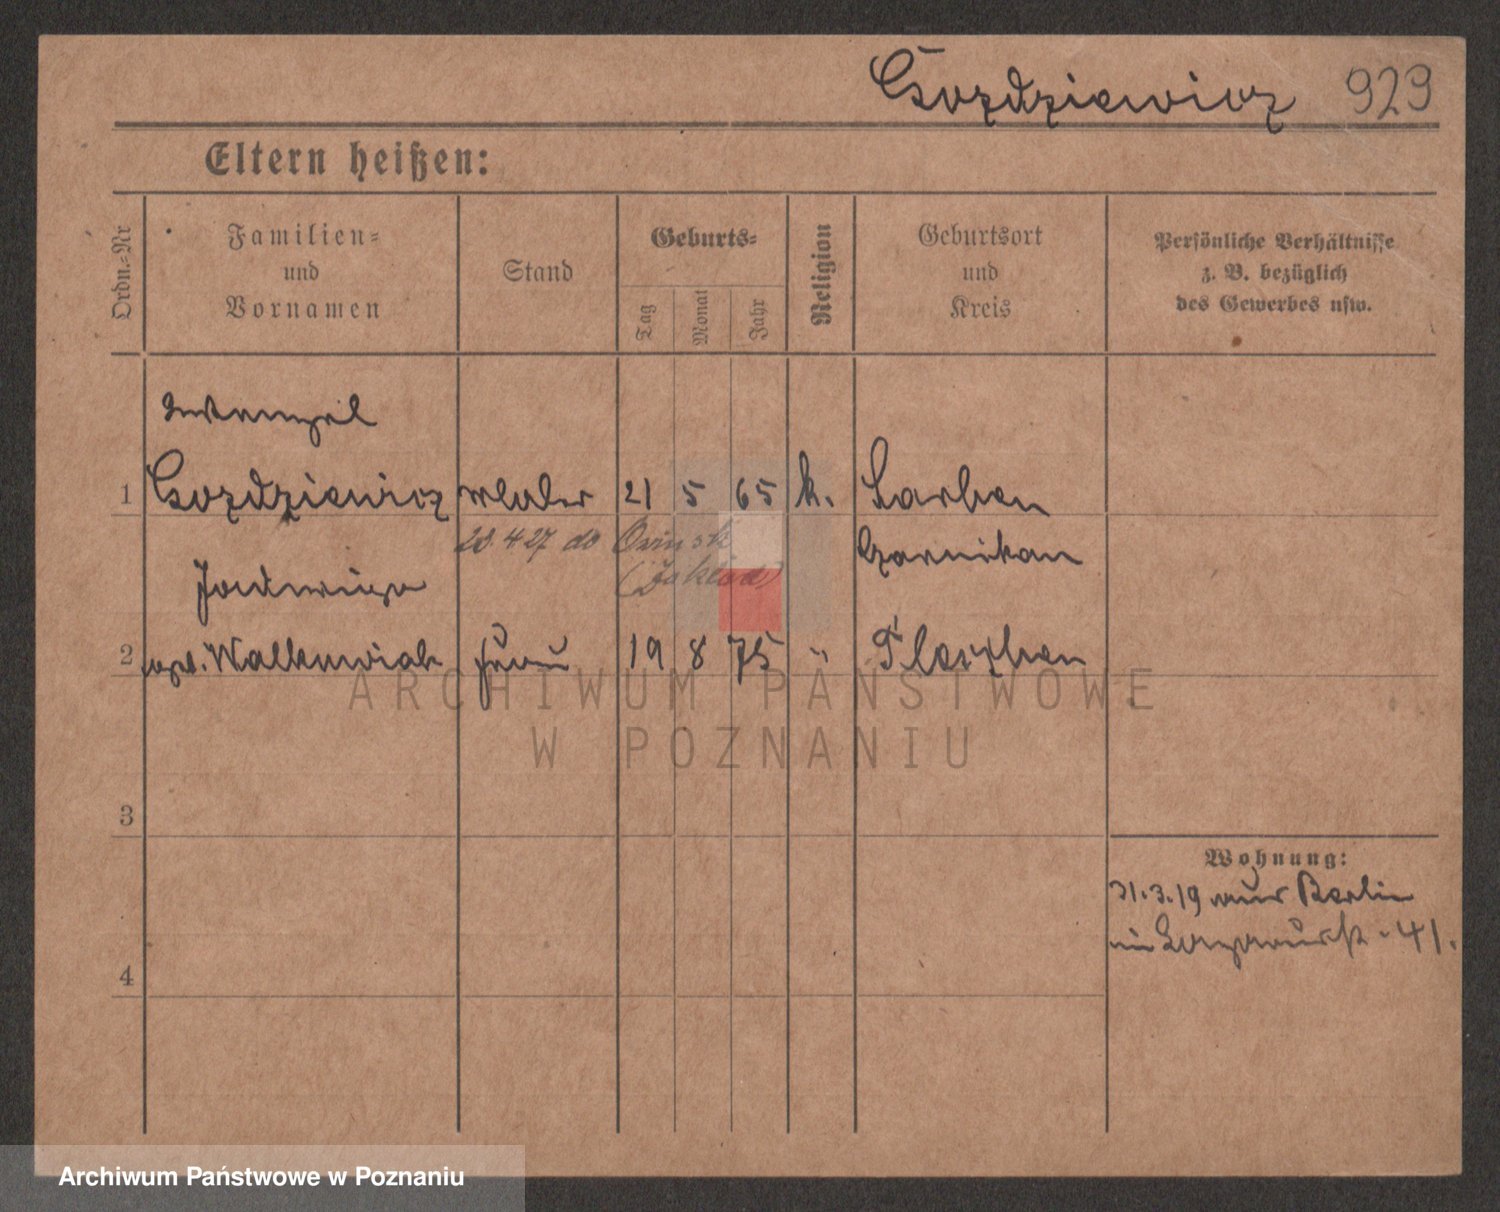 Gozdziewicz 929
Eltern heißen:
Ordn.-Nr
Familien-
und
Vornamen
Stand
Geburts-
Tag
Monat
Jahr
Religion
Geburtsort
und
Kreis
Persönliche Verhältnisse
z. B. bezüglich
des Gewerbes usw.
1 Gozdziewicz 21 5 65 k. Sarben
4 27 do Owinsk
Czarnikau
Jadwiga
2 Walkowiak Frau 19 8 75 "
3
Wohnung:
31.3.19 aus Berlin
41.
4
ARCHIWUM PAŃSTWOWE
W POZNANIU
Archiwum Państwowe w Poznaniu